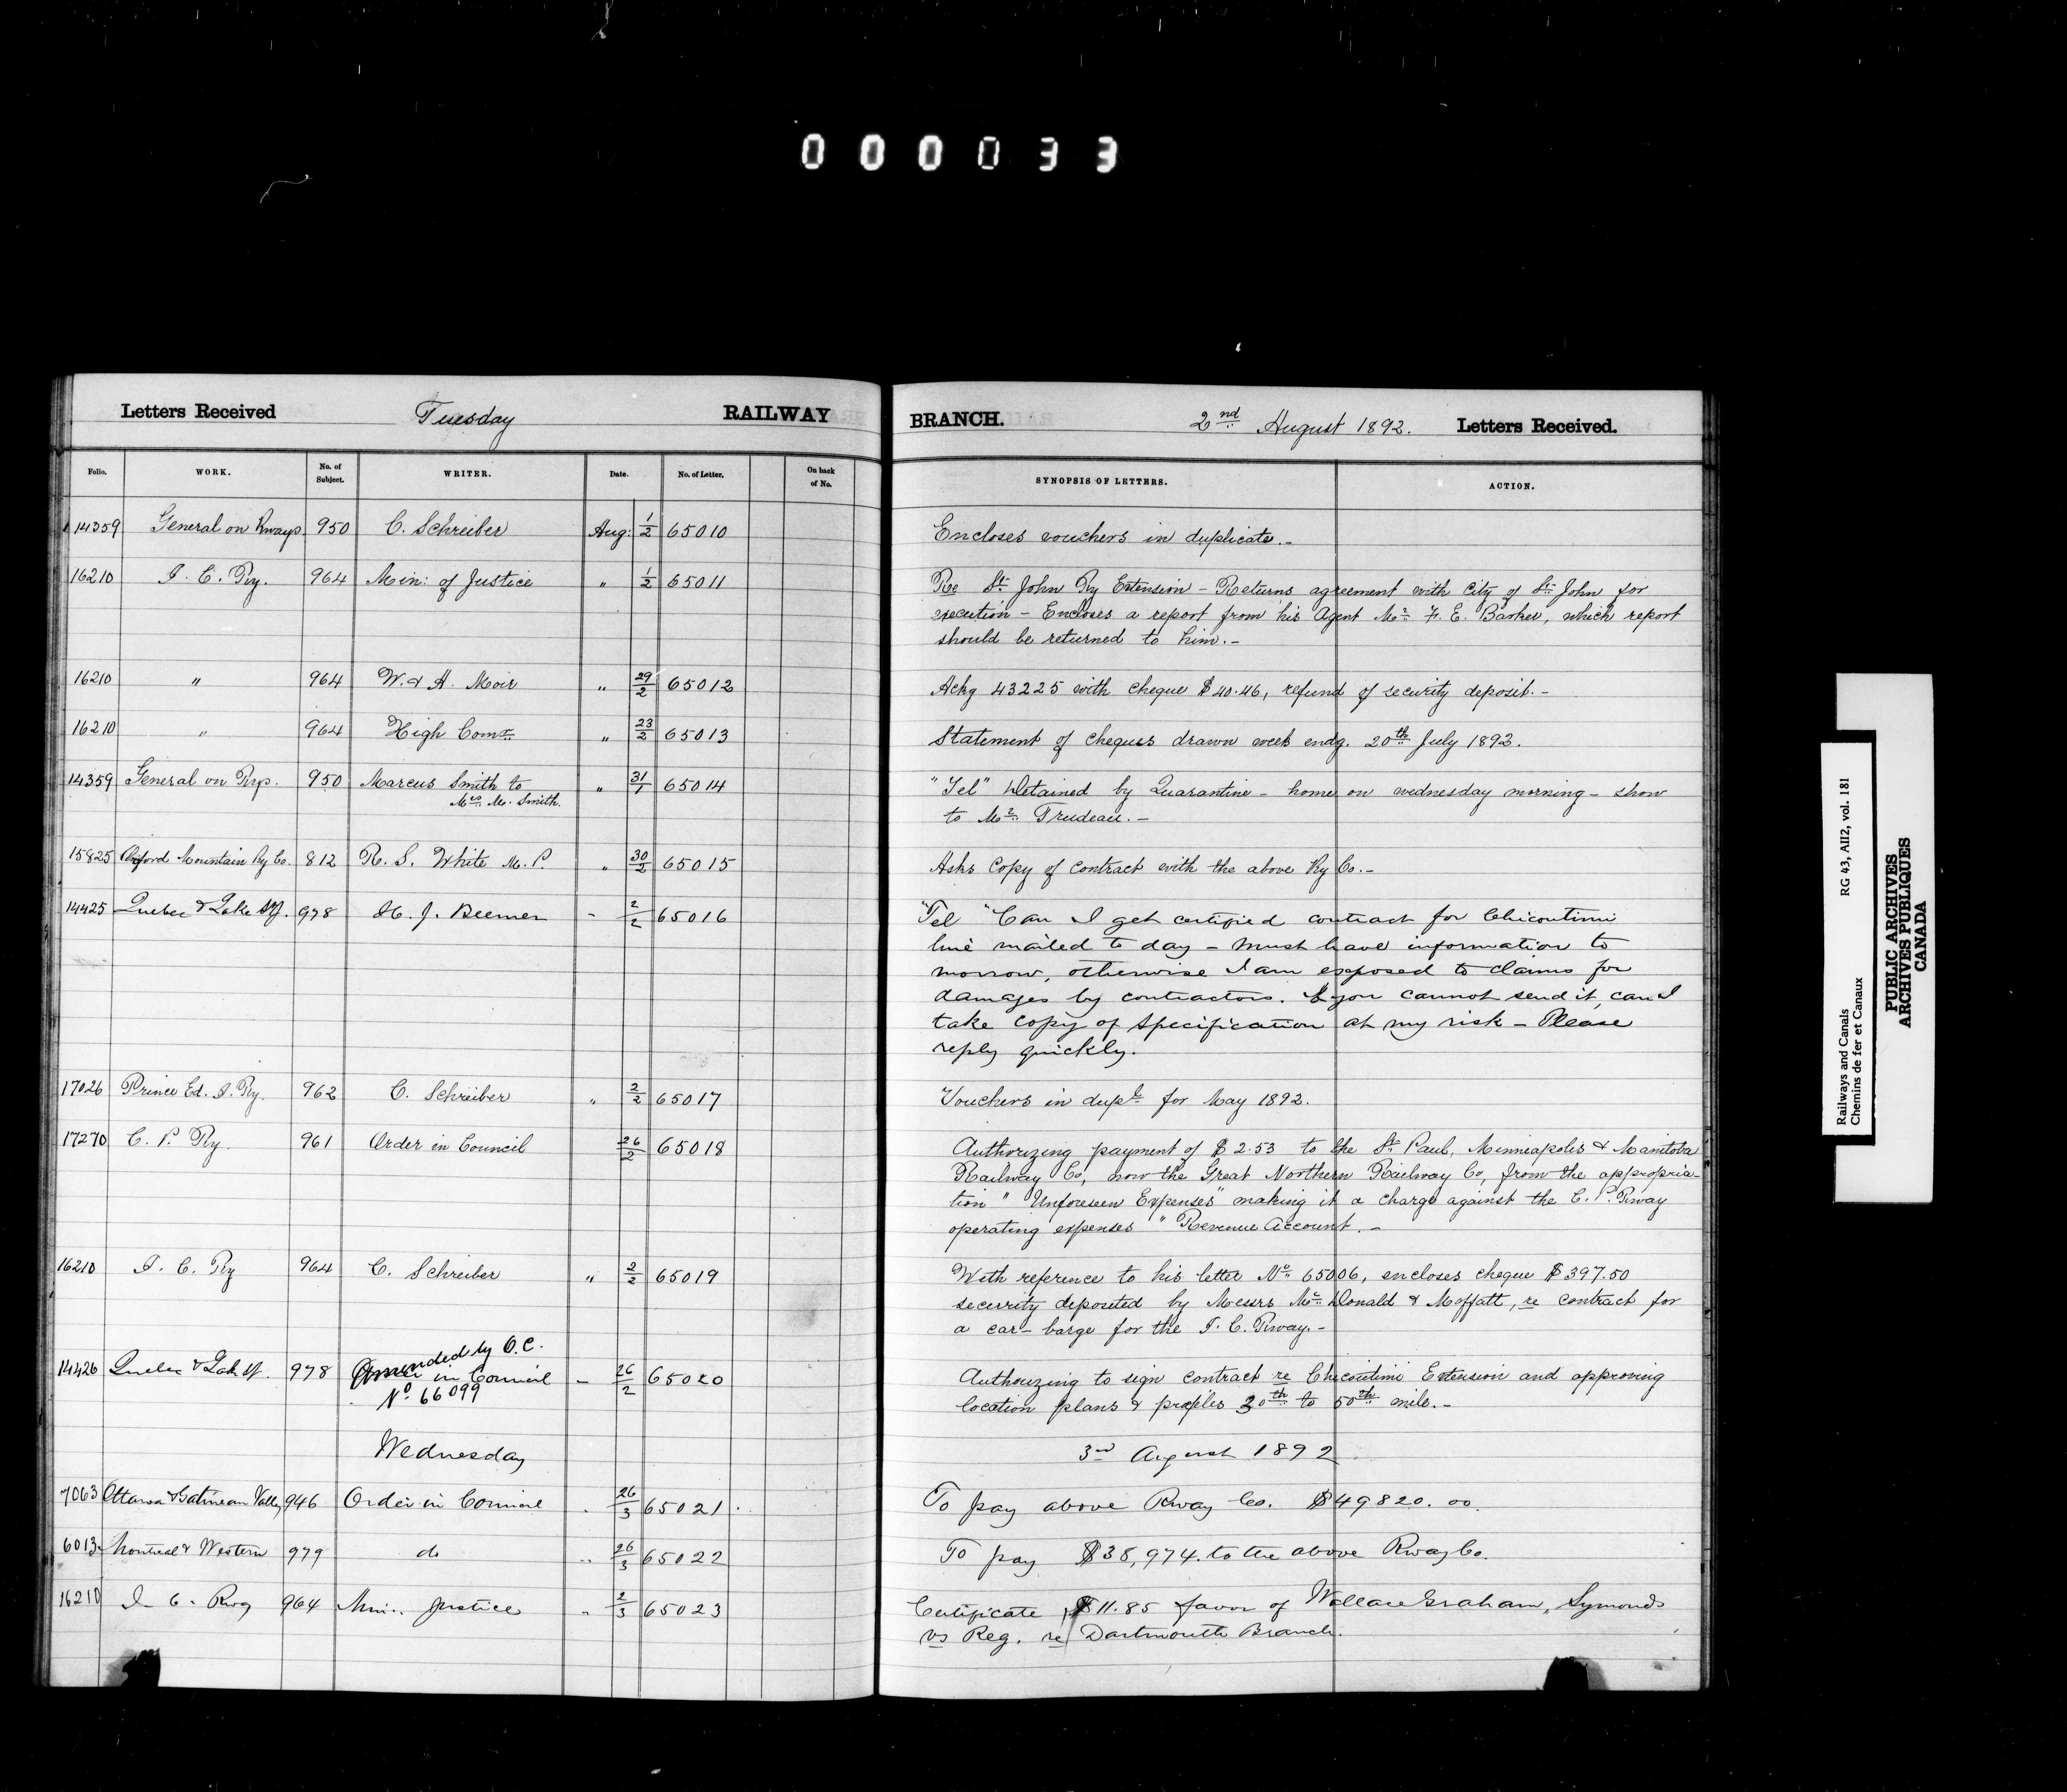 000033
Letters Received Tuesday RAILWAY BRANCH. 2nd August 1892. Letters Received.
Folio. WORK. No. of Subject. WRITER. Date. No. of Letter. On back of No. SYNOPSIS OF LETTERS. ACTION.
14359 General on Rways 950 C. Schreiber Aug: 1/2 65010 Encloses vouchers in duplicate.-
16210 I. C. Ry. 964 Min: of Justice " 1/2 65011 Re St. John Ry Extension - Returns agreement with City of St. John for
execution - Encloses a report from his Agent Mr. F. E. Barker, which report
should be returned to him.-
16210 " 964 W. & A. Moir " 29/2 65012 Ackg 43225 with cheque $40.46, refund of security deposit.-
16210 " 964 High Comr. " 23/2 65013 Statement of cheques drawn week endg. 20th July 1892.
14359 General on Rys. 950 Marcus Smith to " 31/1 65014 "Tel" Detained by Quarantine - home on wednesday morning - show
Mrs. M. Smith. to Mr. Trudeau.-
15825 Orford Mountain Ry Co. 812 R. S. White M. P. " 30/2 65015 Asks copy of contract with the above Ry Co.-
14425 Quebec & Lake St J. 978 H. J. Beemer - 2/2 65016 "Tel "Can I get certified contract for Chicoutimi
line mailed to day - must have information to
morrow, otherwise I am exposed to claims for
damages by contractors. If you cannot send it, can I
take copy of specification at my risk - Please
reply quickly.
17026 Prince Ed. I. Ry. 962 C. Schreiber " 2/2 65017 Vouchers in dupl. for May 1892.
17270 C. P. Ry. 961 Order in Council 26/2 65018 Authorizing payment of $2.53 to the St. Paul, Minneapolis & Manitoba
Railway Co, now the Great Northern Railway Co, from the appropria-
tion "Unforeseen Expenses" making it a charge against the C. P. Rway
operating expenses "Revenue Account.-
16210 I. C. Ry 964 C. Schreiber " 2/2 65019 With reference to his letter No. 65006, encloses cheque $397.50
security deposited by Messrs McDonald & Moffatt, re contract for
a car-barge for the I. C. Rway.-
Amended by O.C.
14426 Quebec & Lake St J. 978 Order in Council - 26/2 65020 Authorizing to sign contract re Chicoutimi Extension and approving
No. 66099 location plans & profiles 30th to 50th mile.-
Wednesday 3rd August 1892
7063 Ottawa & Gatineau Valley 946 Order in Council . 26/3 65021 To pay above Rway Co. $49820.00.
6013 Montreal & Western 979 do " 26/3 65022 To pay $38,974. to the above Rway Co.
16210 I. C. Rwy 964 Min. Justice " 2/3 65023 Certificate $11.85 favor of Wallace Graham, Symonds
vs Reg. re Dartmouth Branch.
Railways and Canals RG 43, AII2, vol. 181
Chemins de fer et Canaux
PUBLIC ARCHIVES
ARCHIVES PUBLIQUES
CANADA